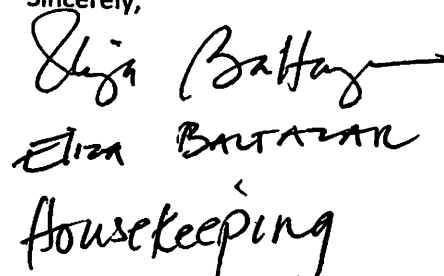 Sincerely,
Eliza Baltazar
ELIZA BALTAZAR
Housekeeping